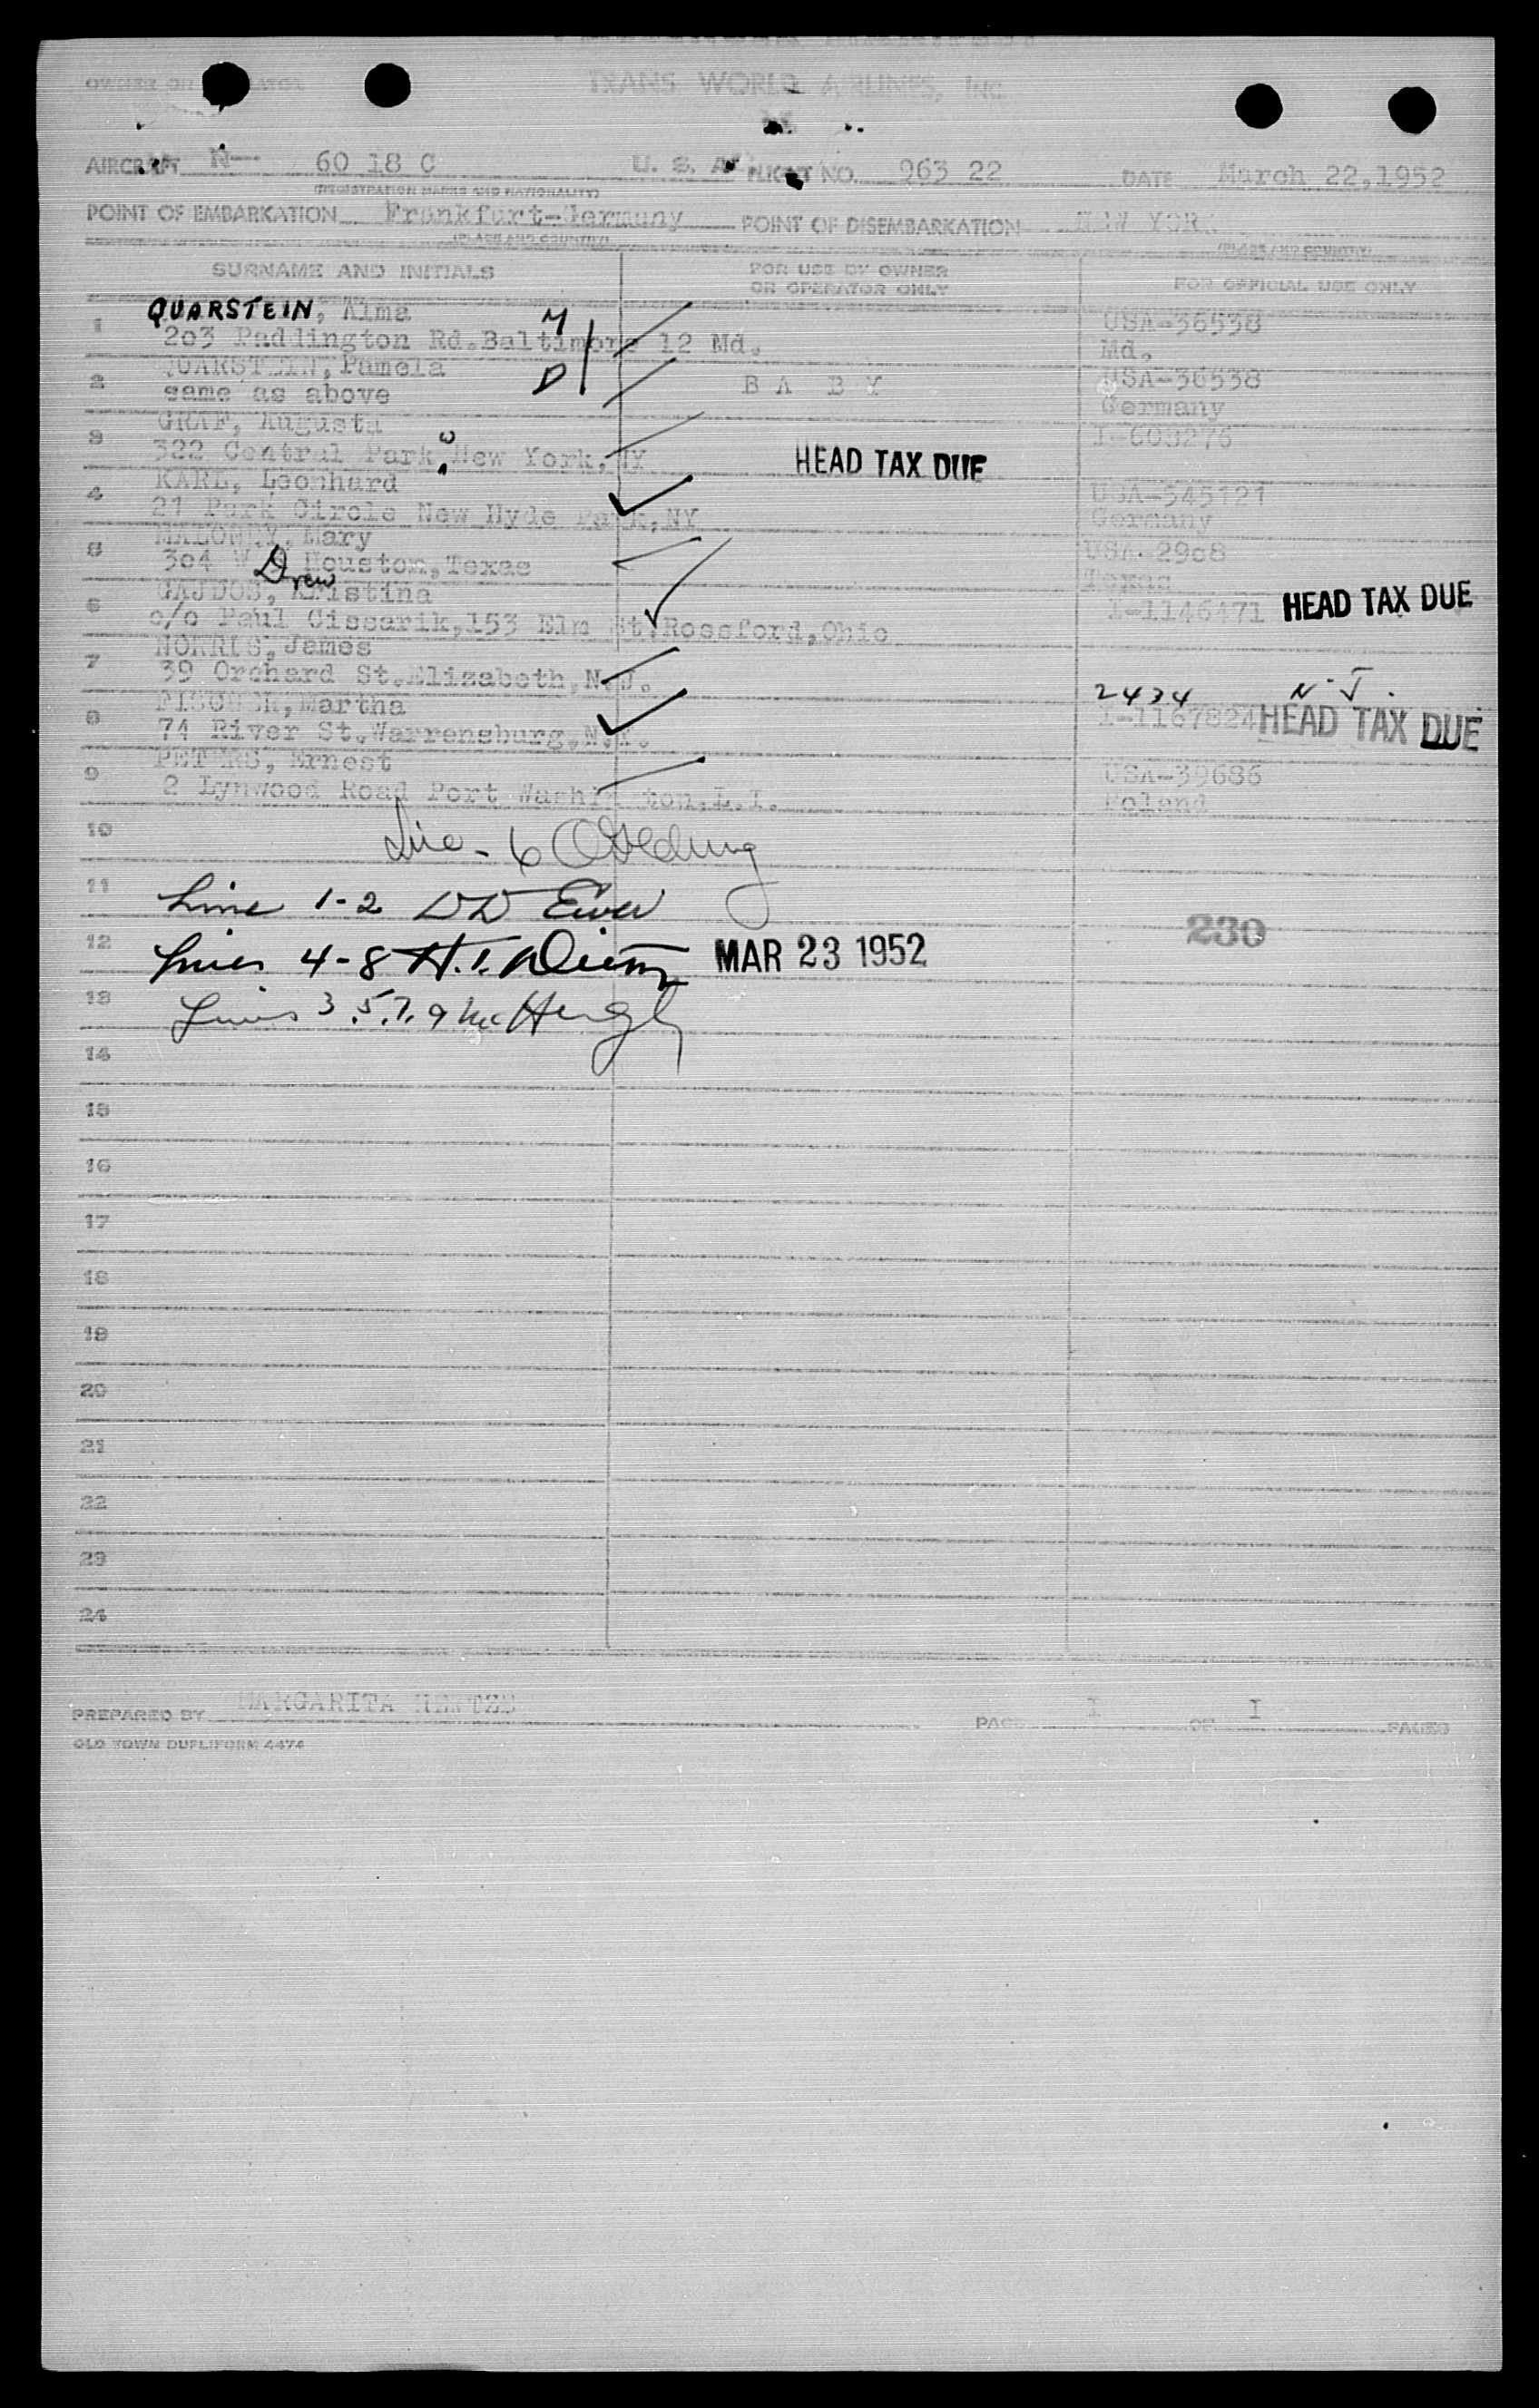 OWNER OR OPERATOR TRANS WORLD AIRLINES, INC.
AIRCRAFT N— 60 18 C U. S. A. FLIGHT NO. 963 22 DATE March 22,1952
(REGISTRATION MARKS AND NATIONALITY)
POINT OF EMBARKATION Frankfurt-Germany POINT OF DISEMBARKATION NEW YORK
(PLACE AND COUNTRY) (PLACE AND COUNTRY)
SURNAME AND INITIALS FOR USE BY OWNER OR OPERATOR ONLY FOR OFFICIAL USE ONLY
1 QUARSTEIN, Alma M USA-36538
203 Paddington Rd.Baltimore 12 Md. Md.
2 QUARSTEIN, Pamela D B A B Y USA-36538
same as above Germany
3 GRAF, Augusta I-608276
322 Central Park W New York, NY HEAD TAX DUE
4 KARL, Leonhard USA-545121
21 Park Circle New Hyde Park, NY Germany
5 MALONEY, Mary USA-2908
304 Drew Houston, Texas Texas
6 GAJDOS, Kristina I-1146471 HEAD TAX DUE
c/o Paul Cissarik,153 Elm St.Rossford,Ohio
7 NORRIS, James
39 Orchard St.Elizabeth,N.J. 2434 N.J.
8 Martha I-1167824 HEAD TAX DUE
74 River St.Warrensburg,N.Y.
9 PETERS, Ernest USA-39686
2 Lynwood Road Port Washington,L.I. Poland
10 Line - 6
11 Line 1-2
12 Lines 4-8 H.T. MAR 23 1952 230
13 Lines 3.5.7.9
14
15
16
17
18
19
20
21
22
23
24
PREPARED BY MARGARITA PAGE I OF I PAGES
OLD TOWN DUPLIFORM 4474